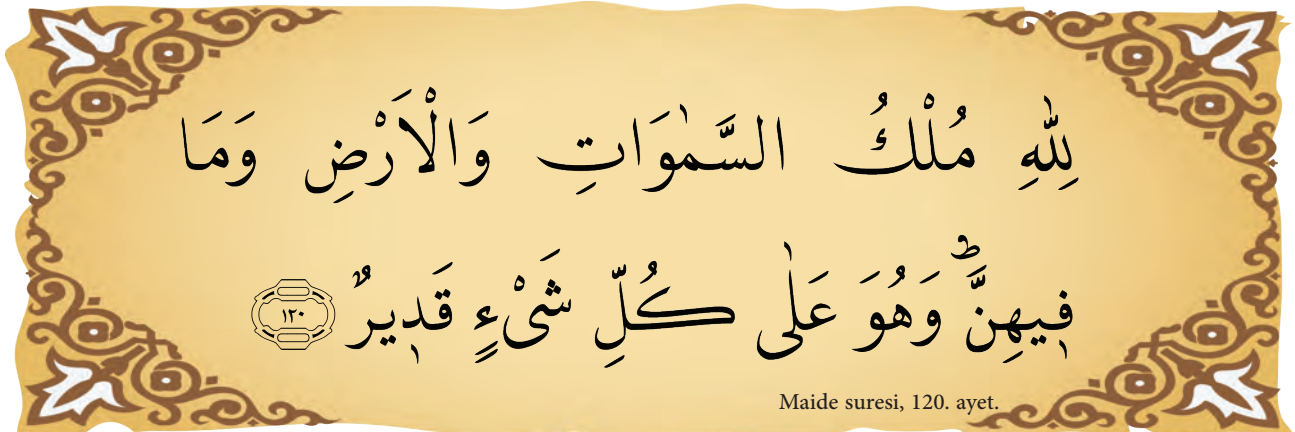 لِلّٰهِ مُلْكُ السَّمٰوَاتِ وَالْاَرْضِ وَمَا
ف۪يهِنَّۜ وَهُوَ عَلٰى كُلِّ شَىْءٍ قَد۪يرٌ ﴿١٢٠﴾
Maide suresi, 120. ayet.